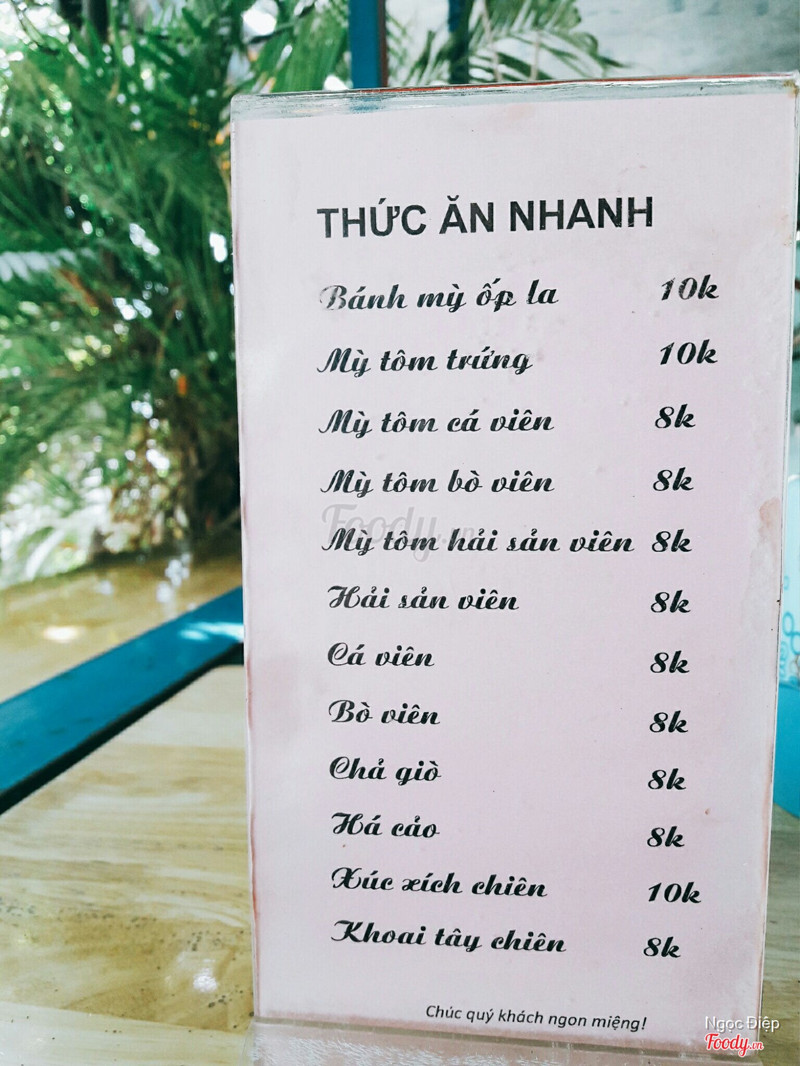 THỨC ĂN NHANH
Bánh mỳ ốp la 10k
Mỳ tôm trứng 10k
Mỳ tôm cá viên 8k
Mỳ tôm bò viên 8k
Foody.vn
Mỳ tôm hải sản viên 8k
Hải sản viên 8k
Cá viên 8k
Bò viên 8k
Chả giò 8k
Há cảo 8k
Xúc xích chiên 10k
Khoai tây chiên 8k
Chúc quý khách ngon miệng!
Ngọc Điệp
Foody.vn